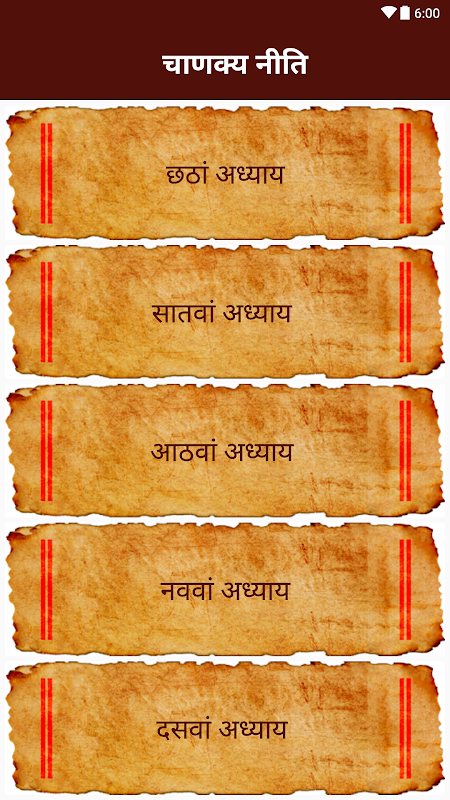 6:00
चाणक्य नीति
छठां अध्याय
सातवां अध्याय
आठवां अध्याय
नववां अध्याय
दसवां अध्याय